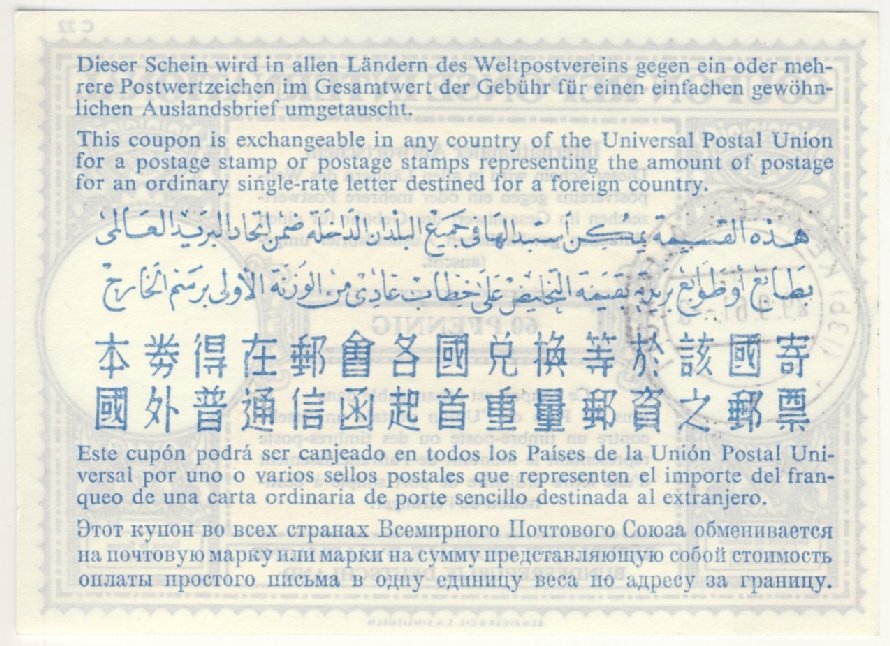 Dieser Schein wird in allen Ländern des Weltpostvereins gegen ein oder meh-
rere Postwertzeichen im Gesamtwert der Gebühr für einen einfachen gewöhn-
lichen Auslandsbrief umgetauscht.
This coupon is exchangeable in any country of the Universal Postal Union
for a postage stamp or postage stamps representing the amount of postage
for an ordinary single-rate letter destined for a foreign country.
هذه القسيمة يمكن استبدالها فى جميع البلدان الداخلة ضمن اتحاد البريد العالمى
بطابع أو طوابع بريد بقيمة التخليص على خطاب عادى من الوزنة الأولى برسم الخارج
本券得在郵會各國兑換等於該國寄
國外普通信函起首重量郵資之郵票
Este cupón podrá ser canjeado en todos los Países de la Unión Postal Uni-
versal por uno o varios sellos postales que representen el importe del fran-
queo de una carta ordinaria de porte sencillo destinada al extranjero.
Этот купон во всех странах Всемирного Почтового Союза обменивается
на почтовую марку или марки на сумму представляющую собой стоимость
оплаты простого письма в одну единицу веса по адресу за границу.